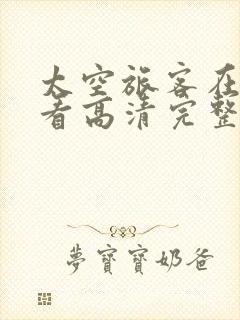 太空旅客在
看高清完整
夢寶寶奶爸